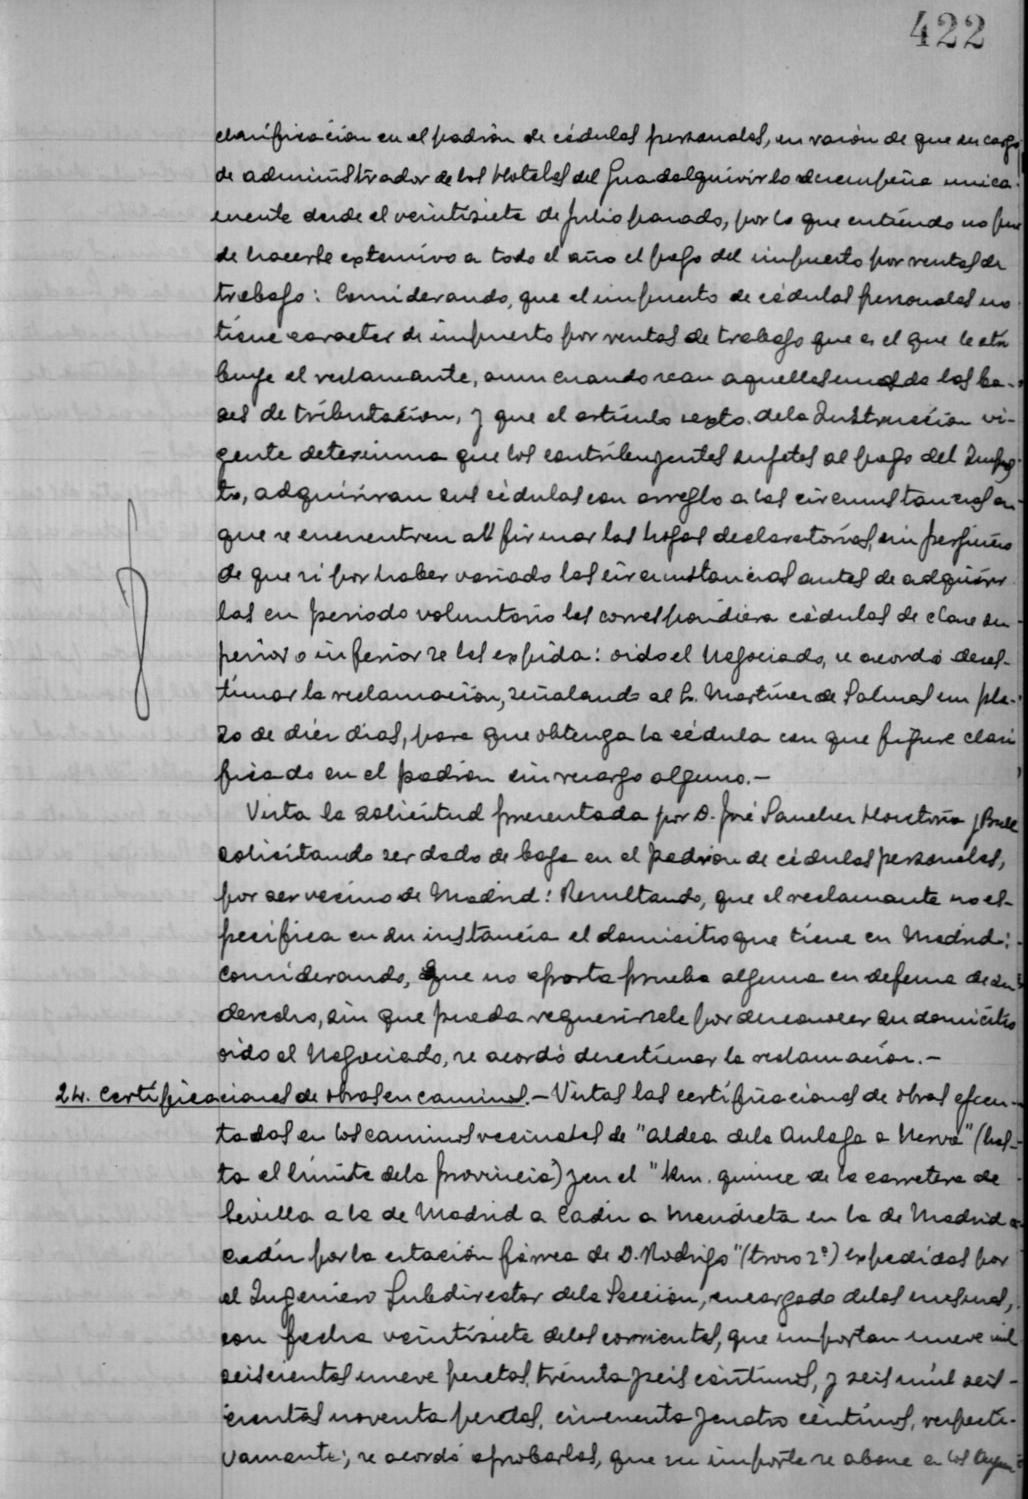 422
clasificación en el padrón de cédulas personales, en razón de que su cargo
de administrador de los Hoteles del Guadalquivir lo desempeña unica-
mente desde el veintisiete de Julio pasado, por lo que entiendo no pue
de hacerle extensivo a todo el año el pago del impuesto por rentas de
trabajo: Considerando, que el impuesto de cédulas personales no
tiene caracter de impuesto por rentas de trabajo que es el que le atri
buye el reclamante, aun cuando sean aquellas una de las ba-
ses de tributación, y que el artículo sexto de la Instrucción vi-
gente determina que los contribuyentes sujetos al pago del Impues
to, adquirirán sus cédulas con arreglo a las circunstancias en
que se encuentren al firmar las hojas declaratorias, sin perjuicio
de que si por haber variado las circunstancias antes de adquirir
las en periodo voluntario les correspondiera cédulas de clase su-
perior o inferior se les expida: oido el Negociado, se acordó deses-
timar la reclamación, señalando al Sr. Martínez de Salinas un pla-
zo de diez dias, para que obtenga la cédula con que figure clasi
ficado en el padrón sin recargo alguno.—
Vista la solicitud presentada por D. José Sanchez y
solicitando ser dado de baja en el padrón de cédulas personales,
por ser vecino de Madrid: Resultando, que el reclamante no es-
pecifica en su instancia el domicilio que tiene en Madrid:
considerando, que no aporta prueba alguna en defensa de su
derecho, sin que pueda requerirsele por desconocer su domicilio
oido el Negociado, se acordó desestimar la reclamación.—
24. Certificaciones de obras en caminos.— Vistas las certificaciones de obras ejecu-
tadas en los caminos vecinales de "Aldea de la Aulaga a Nerva" (has-
ta el límite de la provincia) y en el "Km. quince de la carretera de
Sevilla a la de Madrid a Cadiz a Mendieta en la de Madrid a
Cadiz por la estación férrea de D. Rodrigo" (trozo 2º) expedidas por
el Ingeniero Subdirector de la Sección, encargado de las mismas,
con fecha veintisiete de los corrientes, que importan nueve mil
seiscientas nueve pesetas, treinta y seis céntimos, y seis mil seis-
cientas noventa pesetas, cincuenta y cuatro céntimos, respecti-
vamente; se acordó aprobarlas, que su importe se abone a los Ayun